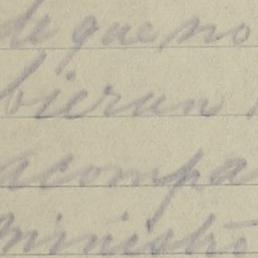 de que no
bieran
acompa
ministro